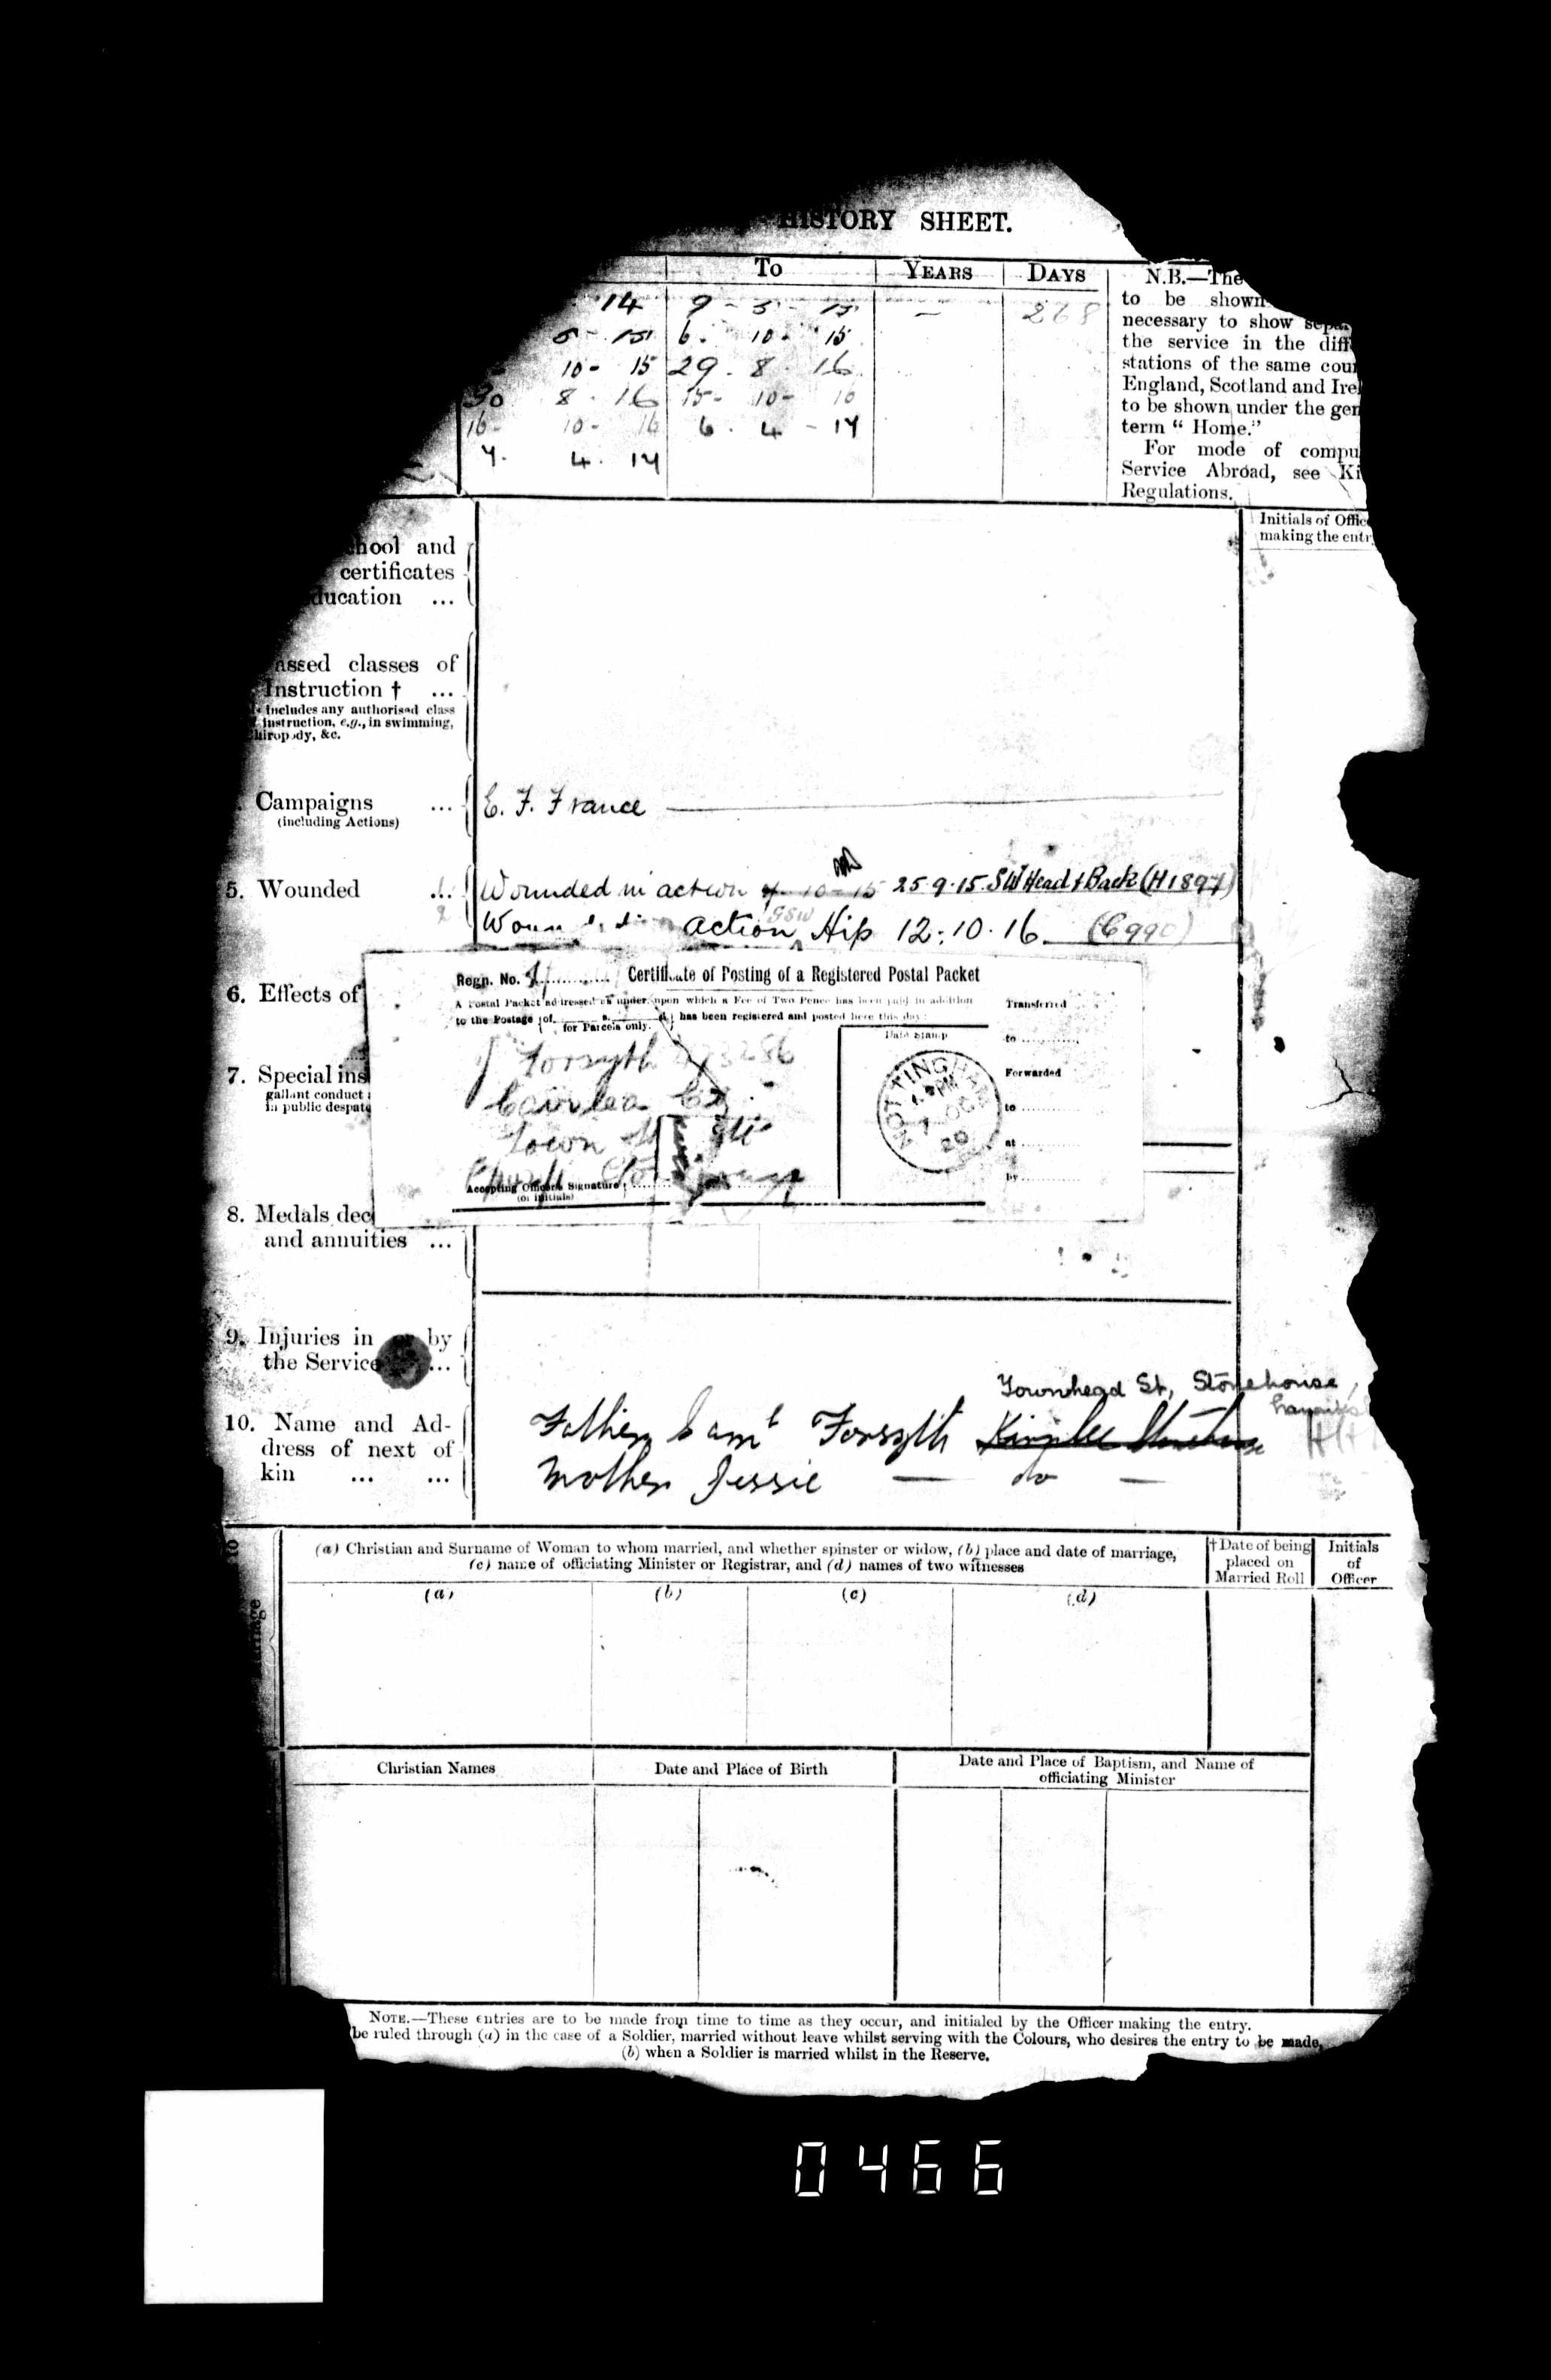 HISTORY SHEET.
To YEARS DAYS
14 9 - 5 - 15 — 268
5 - 15 6 - 10 - 15
10 - 15 29 - 8 - 16
30 8 - 16 15 - 10 - 16
16 - 10 - 16 6 - 4 - 17
7 - 4 - 17
N.B.—The
to be shown
necessary to show
the service in the
stations of the same
England, Scotland and
to be shown under the
term “ Home.”
For mode of
Service Abroad, see
Regulations.
Initials of
making the
and
certificates
...
classes of
Instruction † ...
includes any authorised class
instruction, e.g., in swimming,
&c.
Campaigns ...
(including Actions)
E. F. France
5. Wounded ...
Wounded in action 25.9.15. SW Head & Back (H1897)
action GSW Hip 12.10.16. (C990)
6. Effects of
Regn. No. Certificate of Posting of a Registered Postal Packet
A Postal Packet addressed as under, upon which a Fee of Two Pence has been paid in addition
to the Postage of for Parcels only. has been registered and posted here this day:
Date Stamp
Transferred
to
Forwarded
to
at
by
Forsyth
Town
NOTTINGHAM
PM
7 OC
20
Accepting Officer's Signature
(or initials)
7. Special
gallant conduct
in public
8. Medals
and annuities ...
9. Injuries in or by
the Service ...
10. Name and Ad-
dress of next of
kin ... ...
Townhead St, Stonehouse,
Father Saml Forsyth
Mother Jessie — do —
(a) Christian and Surname of Woman to whom married, and whether spinster or widow, (b) place and date of marriage,
(c) name of officiating Minister or Registrar, and (d) names of two witnesses
† Date of being
placed on
Married Roll
Initials
of
Officer
(a) (b) (c) (d)
Christian Names Date and Place of Birth Date and Place of Baptism, and Name of
officiating Minister
NOTE.—These entries are to be made from time to time as they occur, and initialed by the Officer making the entry.
be ruled through (a) in the case of a Soldier, married without leave whilst serving with the Colours, who desires the entry to be made,
(b) when a Soldier is married whilst in the Reserve.
0466